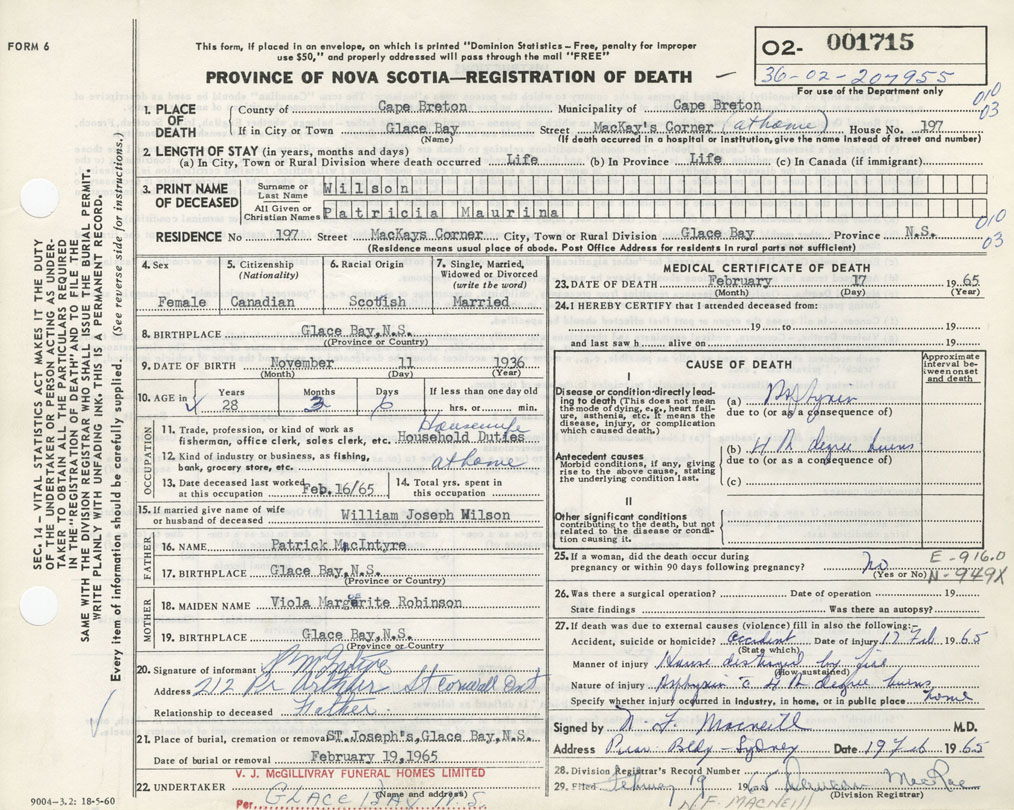 FORM 6
This form, if placed in an envelope, on which is printed "Dominion Statistics – Free, penalty for improper
use $50," and properly addressed will pass through the mail "FREE"
PROVINCE OF NOVA SCOTIA—REGISTRATION OF DEATH
O2- 001715
36-02-207955
For use of the Department only
010
03
1. PLACE OF DEATH
County of Cape Breton Municipality of Cape Breton
If in City or Town Glace Bay Street MacKay's Corner (at home) House No. 197
(Name) (If death occurred in a hospital or institution, give the name instead of street and number)
2. LENGTH OF STAY (in years, months and days)
(a) In City, Town or Rural Division where death occurred Life (b) In Province Life (c) In Canada (if immigrant)
3. PRINT NAME OF DECEASED
Surname or Last Name Wilson
All Given or Christian Names Patricia Maurina
010
03
RESIDENCE No 197 Street MacKays Corner City, Town or Rural Division Glace Bay Province N.S.
(Residence means usual place of abode. Post Office Address for residents in rural parts not sufficient)
4. Sex Female
5. Citizenship (Nationality) Canadian
6. Racial Origin Scottish
7. Single, Married, Widowed or Divorced (write the word) Married
8. BIRTHPLACE Glace Bay,N.S.
(Province or Country)
9. DATE OF BIRTH November 11 1936
(Month) (Day) (Year)
10. AGE in Years 28 Months 3 Days 6 If less than one day old hrs. or min.
OCCUPATION
11. Trade, profession, or kind of work as fisherman, office clerk, sales clerk, etc. Housewife Household Duties
12. Kind of industry or business, as fishing, bank, grocery store, etc. at home
13. Date deceased last worked at this occupation Feb.16/65
14. Total yrs. spent in this occupation
15. If married give name of wife or husband of deceased William Joseph Wilson
FATHER
16. NAME Patrick MacIntyre
17. BIRTHPLACE Glace Bay,N.S.
(Province or Country)
MOTHER
18. MAIDEN NAME Viola Margerite Robinson
19. BIRTHPLACE Glace Bay,N.S.
(Province or Country)
20. Signature of informant
Address 212
Relationship to deceased Father
21. Place of burial, cremation or removal ST.Joseph's,Glace Bay,N.S.
Date of burial or removal February 19,1965
V. J. McGILLIVRAY FUNERAL HOMES LIMITED
22. UNDERTAKER
(Name and address)
Per GLACE BAY
MEDICAL CERTIFICATE OF DEATH
23. DATE OF DEATH February 17 1965
(Month) (Day) (Year)
24. I HEREBY CERTIFY that I attended deceased from:
19 to 19
and last saw h alive on 19
CAUSE OF DEATH
Approximate interval between onset and death
I
Disease or condition directly leading to death (This does not mean the mode of dying, e.g., heart failure, asthenia, etc. It means the disease, injury, or complication which caused death.)
(a) Asphyxia
due to (or as a consequence of)
Antecedent causes
Morbid conditions, if any, giving rise to the above cause, stating the underlying condition last.
(b) 4 th degree burns
due to (or as a consequence of)
(c)
II
Other significant conditions
contributing to the death, but not related to the disease or condition causing it.
25. If a woman, did the death occur during pregnancy or within 90 days following pregnancy? no
(Yes or No)
E-916.0
N-949X
26. Was there a surgical operation? Date of operation 19
State findings Was there an autopsy?
27. If death was due to external causes (violence) fill in also the following:–
Accident, suicide or homicide? accident Date of injury 17 Feb 1965
(State which)
Manner of injury House destroyed by fire
(How sustained)
Nature of injury Asphyxia c 4 th degree burns
Specify whether injury occurred in industry, in home, or in public place home
Signed by N. F. Macneill M.D.
Address Bldg - Sydney Date 19 Feb 1965
28. Division Registrar's Record Number
29. Filed February 19 1965 MacRae
(Division Registrar)
N.F. MACNEILL
SEC. 14 – VITAL STATISTICS ACT MAKES IT THE DUTY
OF THE UNDERTAKER OR PERSON ACTING AS UNDER-
TAKER TO OBTAIN ALL THE PARTICULARS REQUIRED
IN THE "REGISTRATION OF DEATH" AND TO FILE THE
SAME WITH THE DIVISION REGISTRAR WHO SHALL ISSUE THE BURIAL PERMIT.
WRITE PLAINLY WITH UNFADING INK. THIS IS A PERMANENT RECORD.
Every item of information should be carefully supplied. (See reverse side for instructions.)
9004-3.2: 18-5-60